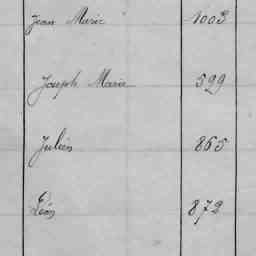 Jean Marie 1003
Joseph Marie 599
Julien 865
Léon 872